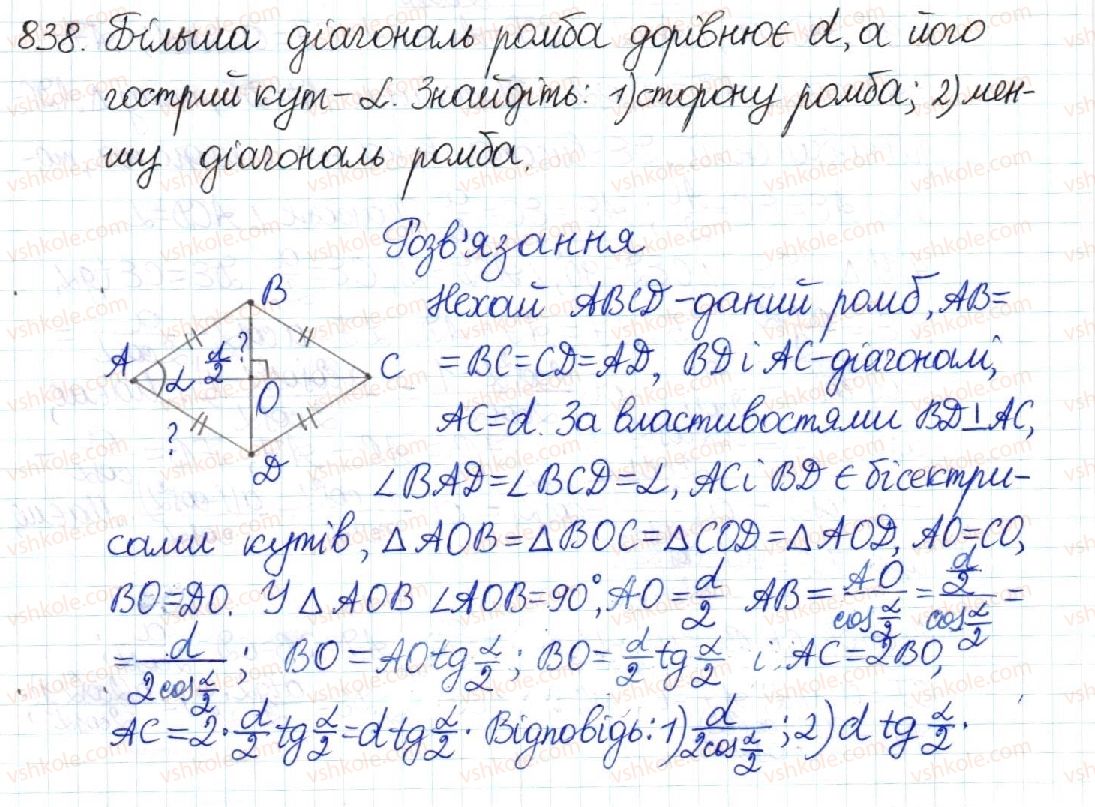 838. Більша діагональ ромба дорівнює d, а його
гострий кут - α. Знайдіть: 1) сторону ромба; 2) мен-
шу діагональ ромба.
Розв'язання
B
A d/2 ? C
α O
?
D
Нехай ABCD - даний ромб, AB=
=BC=CD=AD, BD і AC - діагоналі,
AC=d. За властивостями BD⊥AC,
∠BAD=∠BCD=α, AC і BD є бісектри-
сами кутів, △AOB=△BOC=△COD=△AOD, AO=CO,
BO=DO. У △AOB ∠AOB=90°, AO=d/2 AB=AO/cos α/2=d/2/cos α/2=
=d/2cos α/2; BO=AO tg α/2; BO=d/2 tg α/2 і AC=2BO,
AC=2·d/2 tg α/2=d tg α/2. Відповідь: 1) d/2cos α/2; 2) d tg α/2.